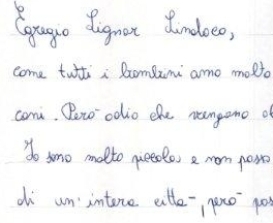 Egregio Signor Sindaco,
come tutti i bambini amo molto
cani. Però odio che vengano
Io sono molto piccola e non posso
di un'intera città, però